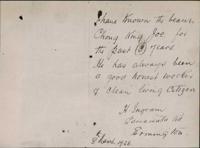 I have known the bearer
Chong King Joe for
the past (3) years
He has always been
a good honest worker
& clean living citizen
H. Ingram
Ermington
1926